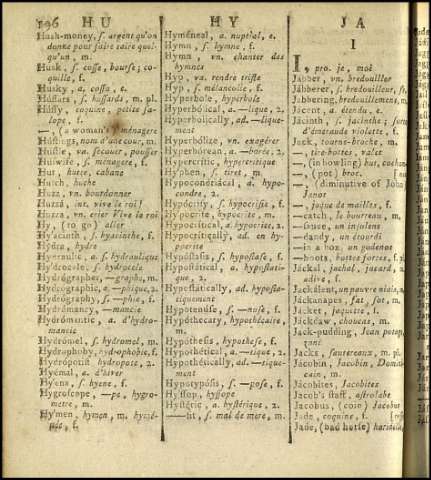 196 HU HY JA
Hush-money, f. argent qu'on
donne pour faire taire quel-
qu'un, m.
Husk, f. cosse, bourse; co-
quille, f.
Husky, a. cossu, e.
Hussars, f. hussards, m. pl.
Hussy, coquine, petite sa-
lope, f.
—, (a woman's) ménagere
Hustings, nom d'une cour, m.
Hustle, va. secouer, pousser
Huswife, f. ménagere, f.
Hut, hutte, cabane
Hutch, huche
Huzz, vn. bourdonner
Huzza, int. vive le roi!
Huzza, vn. crier Vive le roi
Hy, (to go) aller
Hyacinth, f. hyacinthe, f.
Hydra, hydre
Hydraulic, a. f. hydraulique
Hydrocele, f. hydrocele
Hydrographer, —graphe, m.
Hydrographic, a. —phique, 2.
Hydrography, f. —phie, f.
Hydromancy, —mancie
Hydromantic, a. d'hydro-
mancie
Hydromel, f. hydromel, m.
Hydrophoby, hydrophobie, f.
Hydropotist, hydropote, 2.
Hyemal, a. d'hiver
Hyena, f. hyene, f.
Hygroscope, —pe, hygro-
metre, m.
Hymen, hymen, m. hymé-
née, f.
Hymeneal, a. nuptial, e.
Hymn, f. hymne, f.
Hymn, vn. chanter des
hymnes
Hyp, va. rendre triste
Hyp, f. mélancolie, f.
Hyperbole, hyperbole
Hyperbolical, a. —lique, 2.
Hyperbolically, ad. —lique-
ment
Hyperbolize, vn. exagérer
Hyperborean, a. —borée, 2.
Hypercritic, hypercritique
Hyphen, f. tiret, m.
Hypocondriacal, a. hypo-
condre, 2.
Hypocrisy, f. hypocrisie, f.
Hypocrite, hypocrite, m.
Hypocritical, a. hypocrite, 2.
Hypocritically, ad. en hy-
pocrite
Hypostasis, f. hypostase, f.
Hypostatical, a. hypostati-
que, 2.
Hypostatically, ad. hyposta-
tiquement
Hypotenuse, f. —nuse, f.
Hypothecary, hypothécaire,
m.
Hypothesis, hypothese, f.
Hypothetical, a. —tique, 2.
Hypothetically, ad. —tique-
ment
Hypotyposis, f. —pose, f.
Hyssop, hyssope
Hysteric, a. hystérique, 2.
—, f. mal de mere, m.
I
I, pro. je, moi
Jabber, vn. bredouiller
Jabberer, f. bredouilleur,
Jabbering, bredouillement,
Jacent, a. étendu, e.
Jacinth, f. jacinthe; sorte
d'émeraude violette, f.
Jack, tourne-broche, m.
—, tire-bottes, valet
—, (in howling) but, cochon
—, (pot) broc,
—, (diminutive of John
Janot
—, jaque de mailles, f.
—catch, le bourreau, m.
—sauce, un insolent
—dandy, un étourdi
—in a box, un godenot
—boots, bottes fortes, f.
Jackal, jachal, jacard,
adive, f.
Jackalent, un pauvre niais,
Jackanapes, fat, sot, m.
Jacket, jaquette, f.
Jackdaw, choucas, m.
Jack-pudding, Jean potage,
Jacks, sautereaux, m. pl.
Jacobin, Jacobin, Domini-
cain, m.
Jacobites, Jacobites
Jacob's staff, astrolabe
Jacobus, (coin) Jacobus
Jade, coquine, f.
Jade, (bad horse) haridelle,